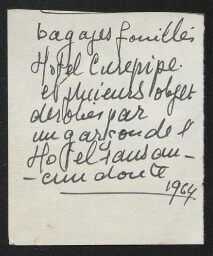 bagages fouillés
Hotel Curepipe.
et plusieurs objet
derobés par
un garçon de l'
Hotel sans au-
-cun doute
1964